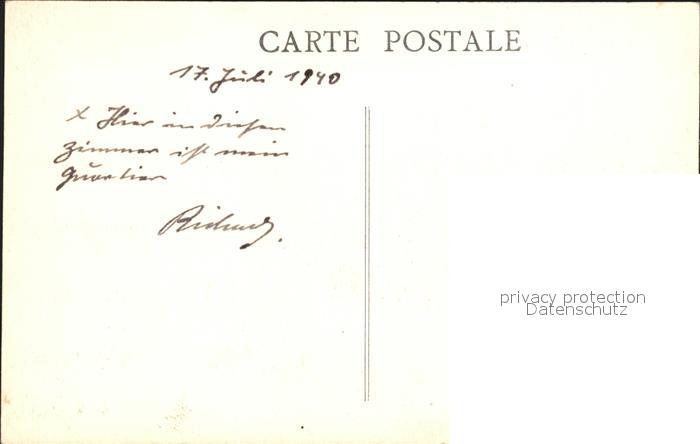 CARTE POSTALE
17. Juli 1940
x Hier in diesem
Zimmer ist mein
Quartier
Richard.
privacy protection
Datenschutz